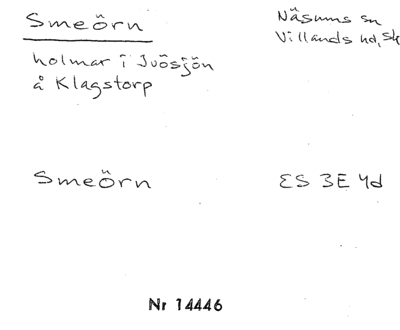 Smeörn
Näsums sn
Villands hd, Sk
holmar i Ivösjön
å Klagstorp
Smeörn
ES 3E 4d
Nr 14446